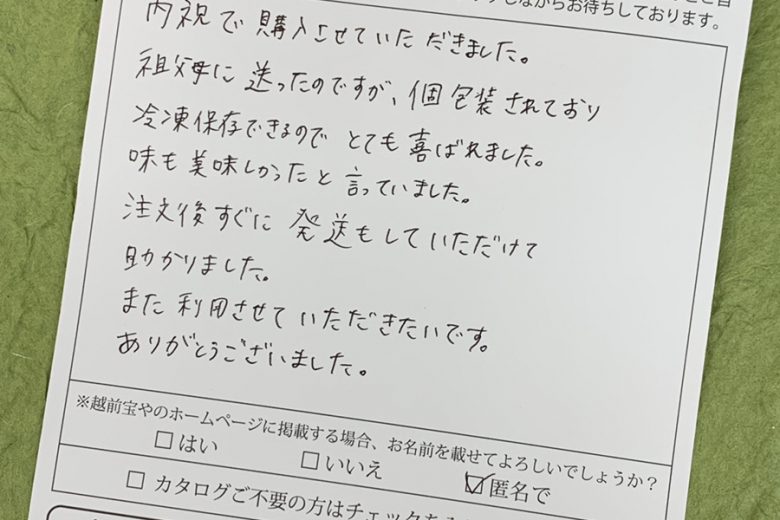 しながらお待ちしております。
内祝で購入させていただきました。
祖父母に送ったのですが、個包装されており
冷凍保存できるのでとても喜ばれました。
味も美味しかったと言っていました。
注文後すぐに発送もしていただけて
助かりました。
また利用させていただきたいです。
ありがとうございました。
※越前宝やのホームページに掲載する場合、お名前を載せてよろしいでしょうか？
□はい □いいえ ☑匿名で
□カタログご不要の方はチェックを